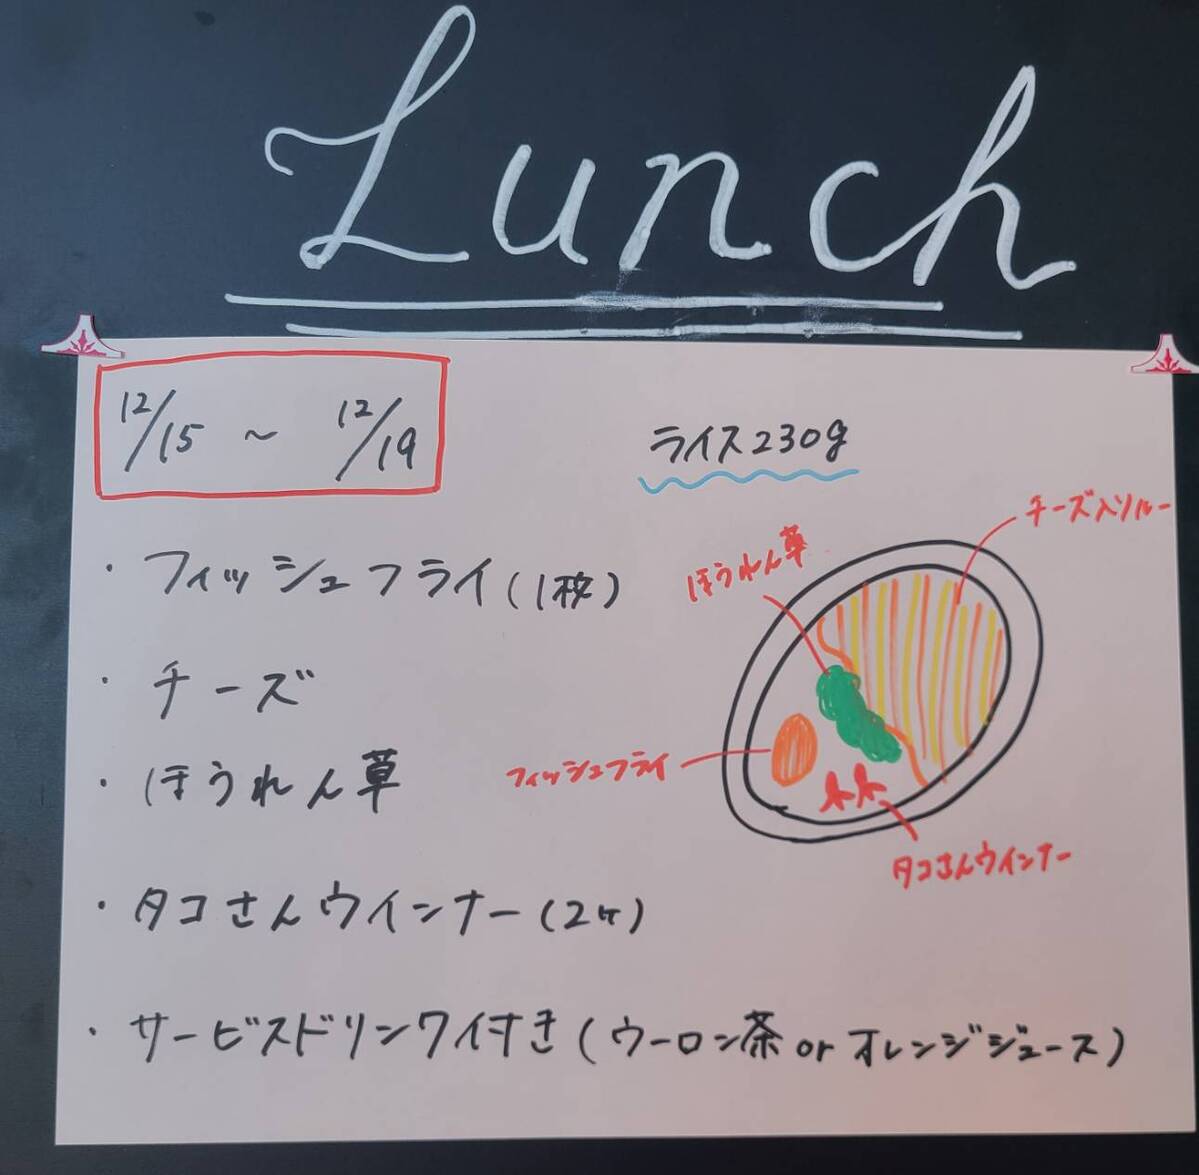 Lunch
12/15 ~ 12/19
ライス230g
・フィッシュフライ(1枚)
・チーズ
・ほうれん草
・タコさんウインナー(2ヶ)
・サービスドリンク付き(ウーロン茶 or オレンジジュース)
チーズ入りルー
ほうれん草
フィッシュフライ
タコさんウインナー